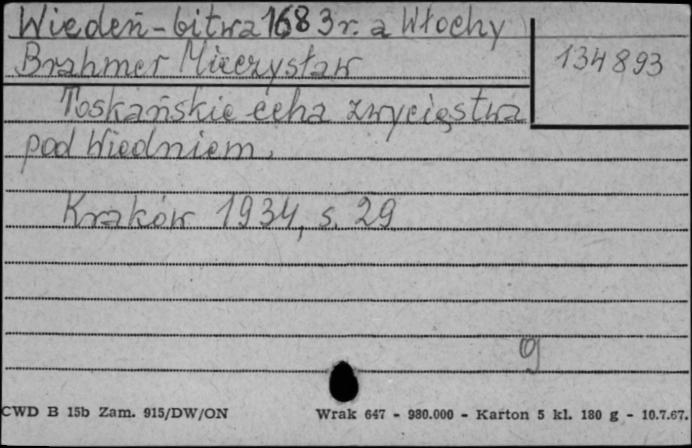 Wiedeń-bitwa 1683 r. a Włochy
134893
Brahmer Mieczysław
Toskańskie echa zwycięstwa
pod Wiedniem.
Kraków 1934, s. 29
g
CWD B 15b Zam. 915/DW/ON Wrak 647 - 980.000 - Karton 5 kl. 180 g - 10.7.67.